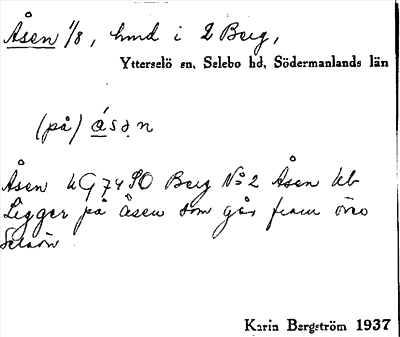 Åsen 1/8, hmd i 2 Berg,
Ytterselö sn, Selebo hd, Södermanlands län
(på) ásən
Åsen hG 74 SO Berg No 2 Åsen hb
Ligger på åsen som går fram över
Selaön
Karin Bergström 1937